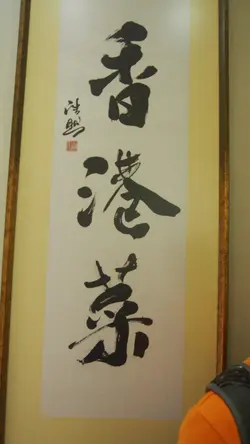 香港菜